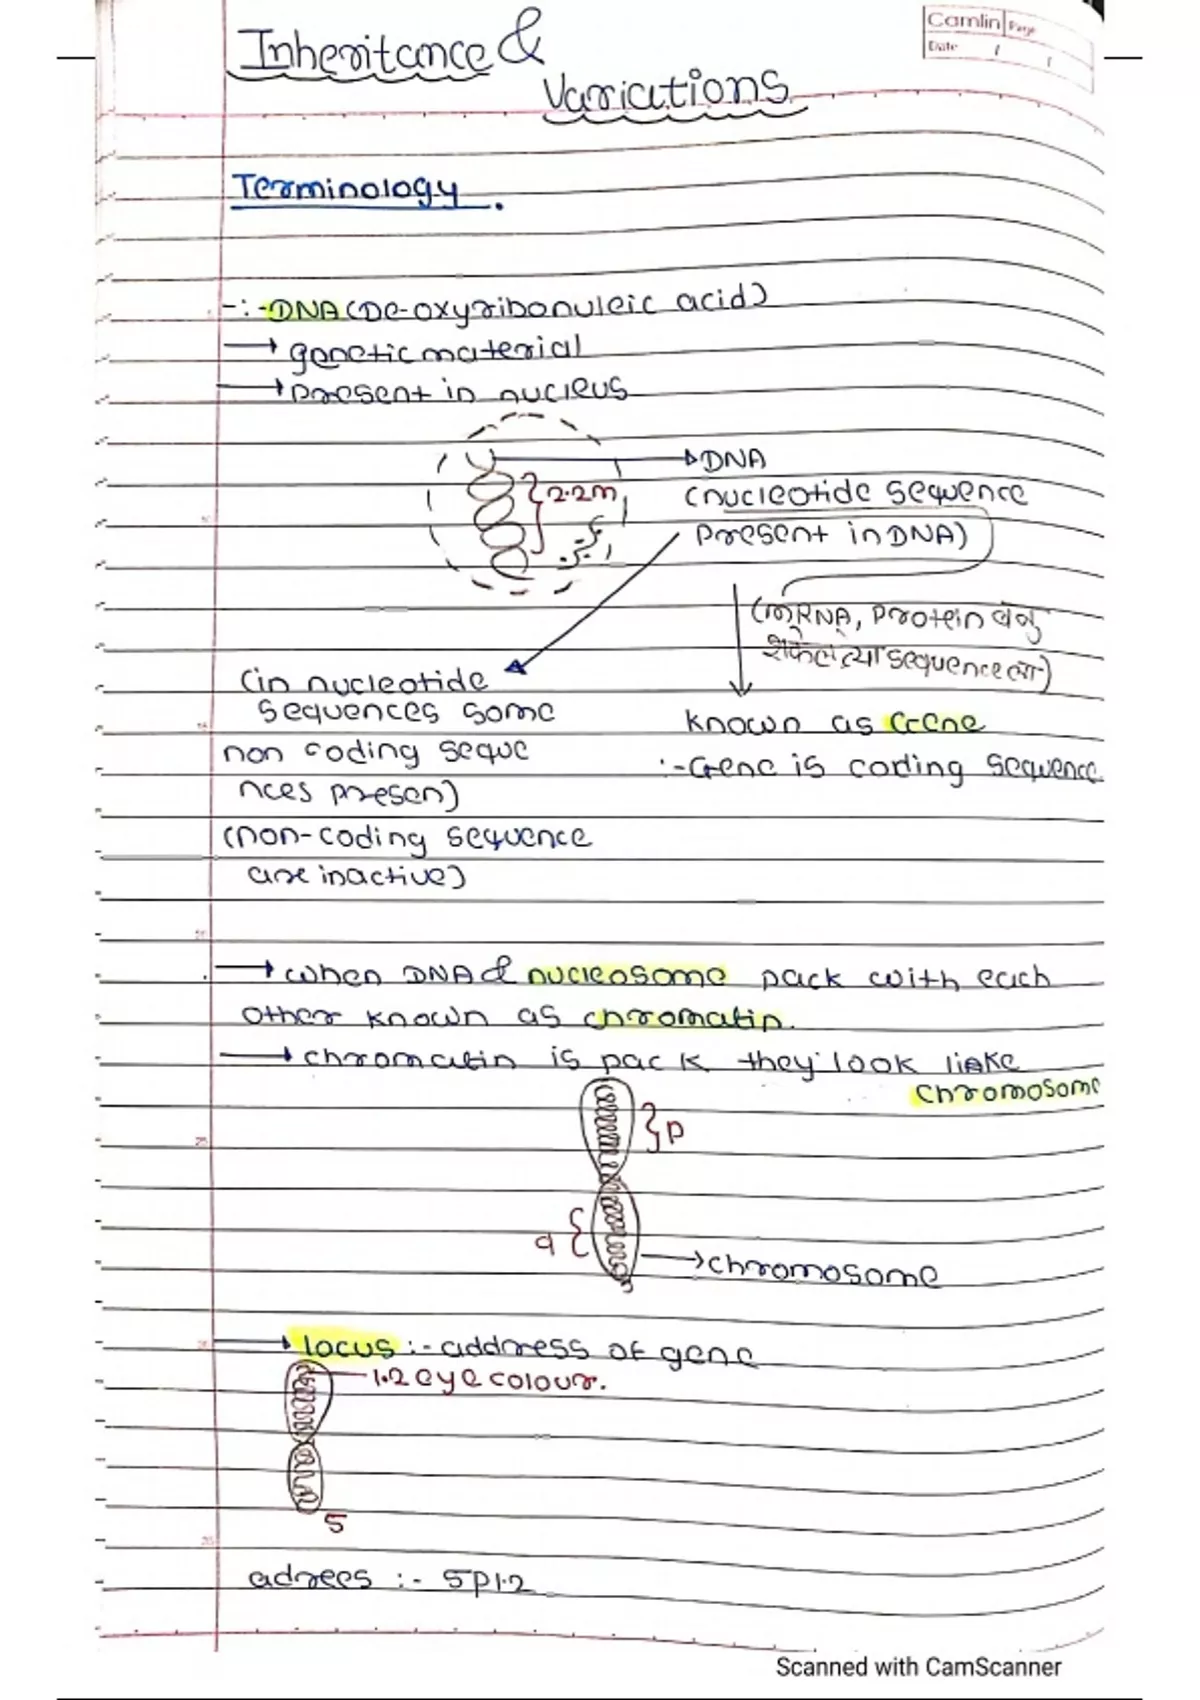 Camlin Page
Date / /
Inheritance &
Variations
Terminology.
-:-DNA (De-oxyribonuleic acid)
→ genetic material
→ present in nucleus
→ DNA
2.2m
(nucleotide sequence
present in DNA)
(mRNA, protein बनू
शकेल त्या sequence ला)
(in nucleotide
sequences some
non coding seque
nces presen)
(non-coding sequence
are inactive)
known as Gene
:-Gene is coding sequence
→ when DNA & nucleosome pack with each
other known as chromatin.
→ chromatin is pack they look liake
chromosome
p
q
→ chromosome
→ locus :- address of gene
1.2 eye colour.
5
adrees :- 5p1.2
Scanned with CamScanner